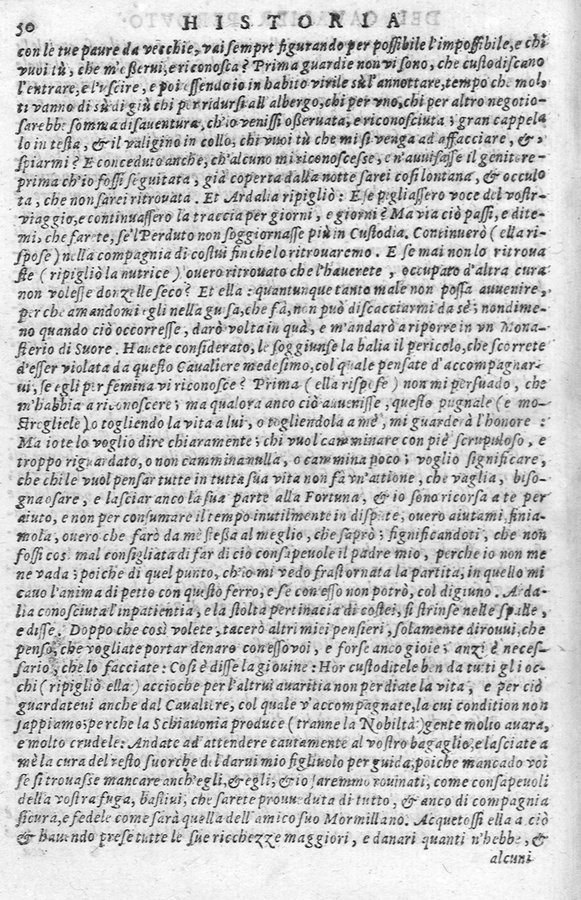 50 HISTORIA
con le tue paure da vecchie, vai semprt figurando per possibile l'impossibile, e chi
vuoi tù, che m'osserui, e riconosca? Prima guardie non vi sono, che custodiscano
l'entrare, e l'vscire, e poi essendo io in habito virile sù l'annottare, tempo che mol-
ti vanno di sù di giù chi per ridursi all'albergo, chi per vno, chi per altro negotio
sarebbe somma disauentura, ch'io venissi osseruata, e riconosciuta; gran cappel
lo in testa, & il valigino in collo, chi vuoi tù che mi si venga ad affacciare, &
spiarmi? E conceduto anche, ch'alcuno mi riconoscesse, e n'auuisasse il genitore
prima ch'io fossi seguitata, già coperta dalla notte sarei così lontana, & occulo
ta, che non sarei ritrovata. Et Ardalia ripigliò: E se pigliassero voce del vostr-
viaggio, e continuassero la traccia per giorni, e giorni? Ma via ciò passi, e dite-
mi, che farete, se'l Perduto non soggiornasse più in Custodia. Continuerò (ella ri-
spose) nella compagnia di costui finche lo ritrouaremo. E se mai non lo ritroua
ste (ripigliò la nutrice) ouero ritrovato che l'hauerete, occupato d'altra cura
non volesse donzelle seco? Et ella: quantunque tanto male non possa auuenire,
perche amandomi egli nella guisa, che fà, non può discacciarmi da sè; nondime-
no quando ciò occorresse, darò volta in quà, e m'andarò a riporre in vn Mona-
sterio di Suore. Hauete considerato, le soggiunse la balia il pericolo, che scorrete
d'esser violata da questo Caualiere medesimo, col quale pensate d'accompagnar-
ui, se egli per femina vi riconosce? Prima (ella rispose) non mi persuado, che
m'habbia a riconoscere; ma qualora anco ciò auuenisse, questo pugnale (e mo-
strogliele) o togliendo la vita a lui, o togliendola a me, mi guarderà l'honore:
Ma io te lo voglio dire chiaramente; chi vuol camminare con piè scrupuloso, e
troppo riguardato, o non cammina nulla, o cammina poco; voglio significare,
che chi le vuol pensar tutte in tutta sua vita non fà vn'attione, che vaglia, biso-
gna osare, e lasciar anco la sua parte alla Fortuna, & io sono ricorsa a te per
aiuto, e non per consumare il tempo inutilmente in dispute, ouero aiutami, finia-
mola, ouero che farò da me stessa al meglio, che saprò; significandoti, che non
fossi cos mal consigliata di far di ciò consapeuole il padre mio, perche io non me
ne vada; poiche di quel punto, ch'io mi vedo frastornata la partita, in quello mi
cauo l'anima di petto con questo ferro, e se con esso non potrò, col digiuno. Arda-
lia conosciuta l'inpatientia, e la stolta pertinacia di costei, si strinse nelle spalle,
e disse. Doppo che così volete, tacerò altri miei pensieri, solamente dirouui, che
penso, che vogliate portar denaro con esso voi, e forse anco gioie; anzi è neces-
sario, che lo facciate: Così è disse la giouine: Hor custoditele ben da tutti gli oc-
chi (ripigliò ella) accioche per l'altrui auaritia non perdiate la vita, e per ciò
guardateui anche dal Caualiere, col quale v'accompagnate, la cui condition non
sappiamo; perche la Schiauonia produce (tranne la Nobiltà) gente molto auara,
e molto crudele: Andate ad attendere cautamente al vostro bagaglio, e lasciate a
mè la cura del resto fuorche di darui mio figliuolo per guida, poiche mancado voi
se si trouasse mancare anch'egli, & egli, & io saremmo rouinati, come consapeuoli
della vostra fuga, bastiui, che sarete prouueduta di tutto, & anco di compagnia
sicura, e fedele come sarà quella dell'amico suo Mormillano. Acquetossi ella a ciò
& hauendo prese tutte le sue ricchezze maggiori, e danari quanti n'hebbe, &
alcuni